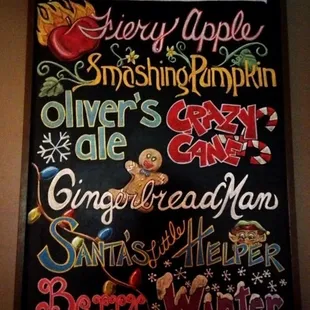 Fiery Apple
Smashing Pumpkin
oliver's ale
CRAZY CANE
Gingerbread Man
SANTA'S Little HELPER
Winter